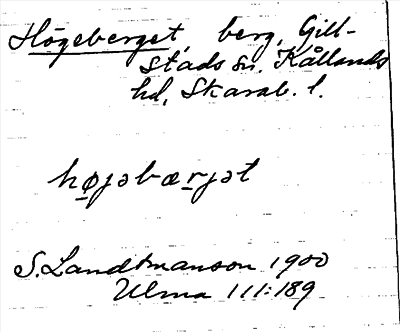 Högeberget, berg, Gill-
stads sn. Kållands
hd, Skarab. l.
højəbærjət
S. Landtmanson 1900
Ulma 111:189